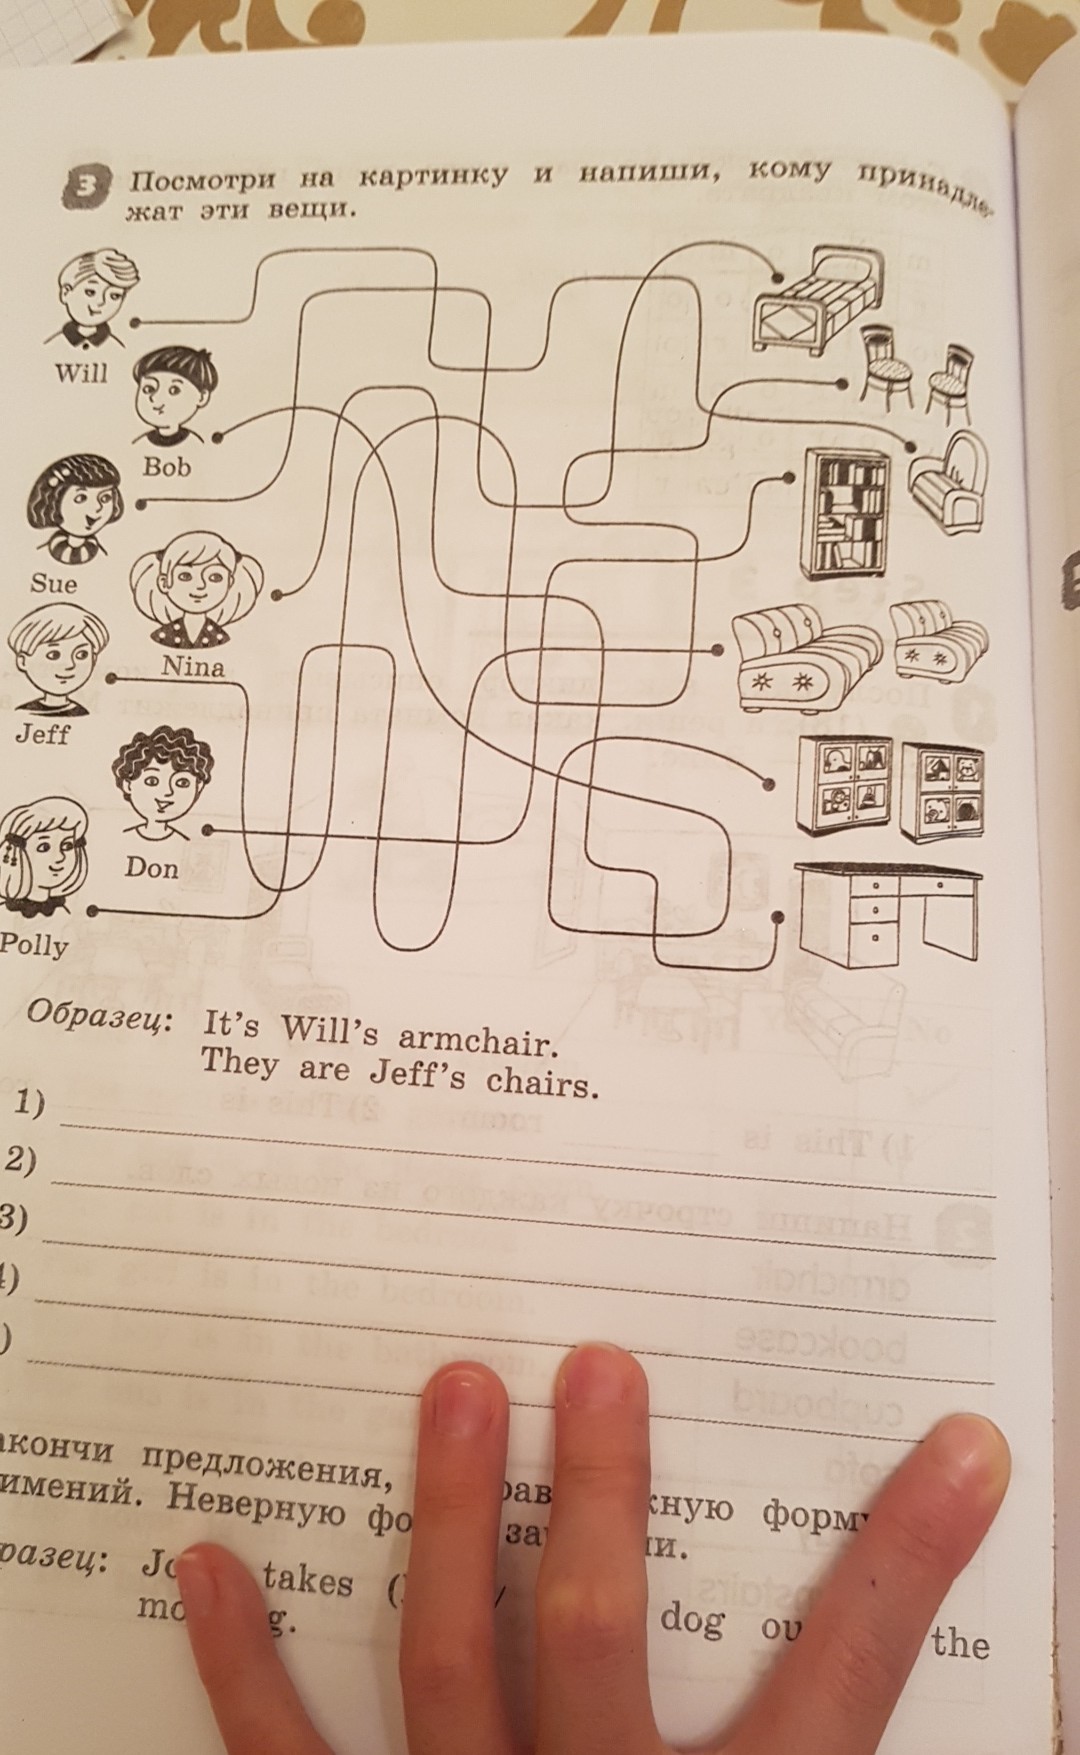 3 Посмотри на картинку и напиши, кому принадле-
жат эти вещи.
Will
Bob
Sue
Nina
Jeff
Don
Polly
Образец: It's Will's armchair.
They are Jeff's chairs.
1)
2)
3)
)
)
акончи предложения, рав жную форм
имений. Неверную фо за и.
разец: Jo takes ( / dog ou the
mo g.